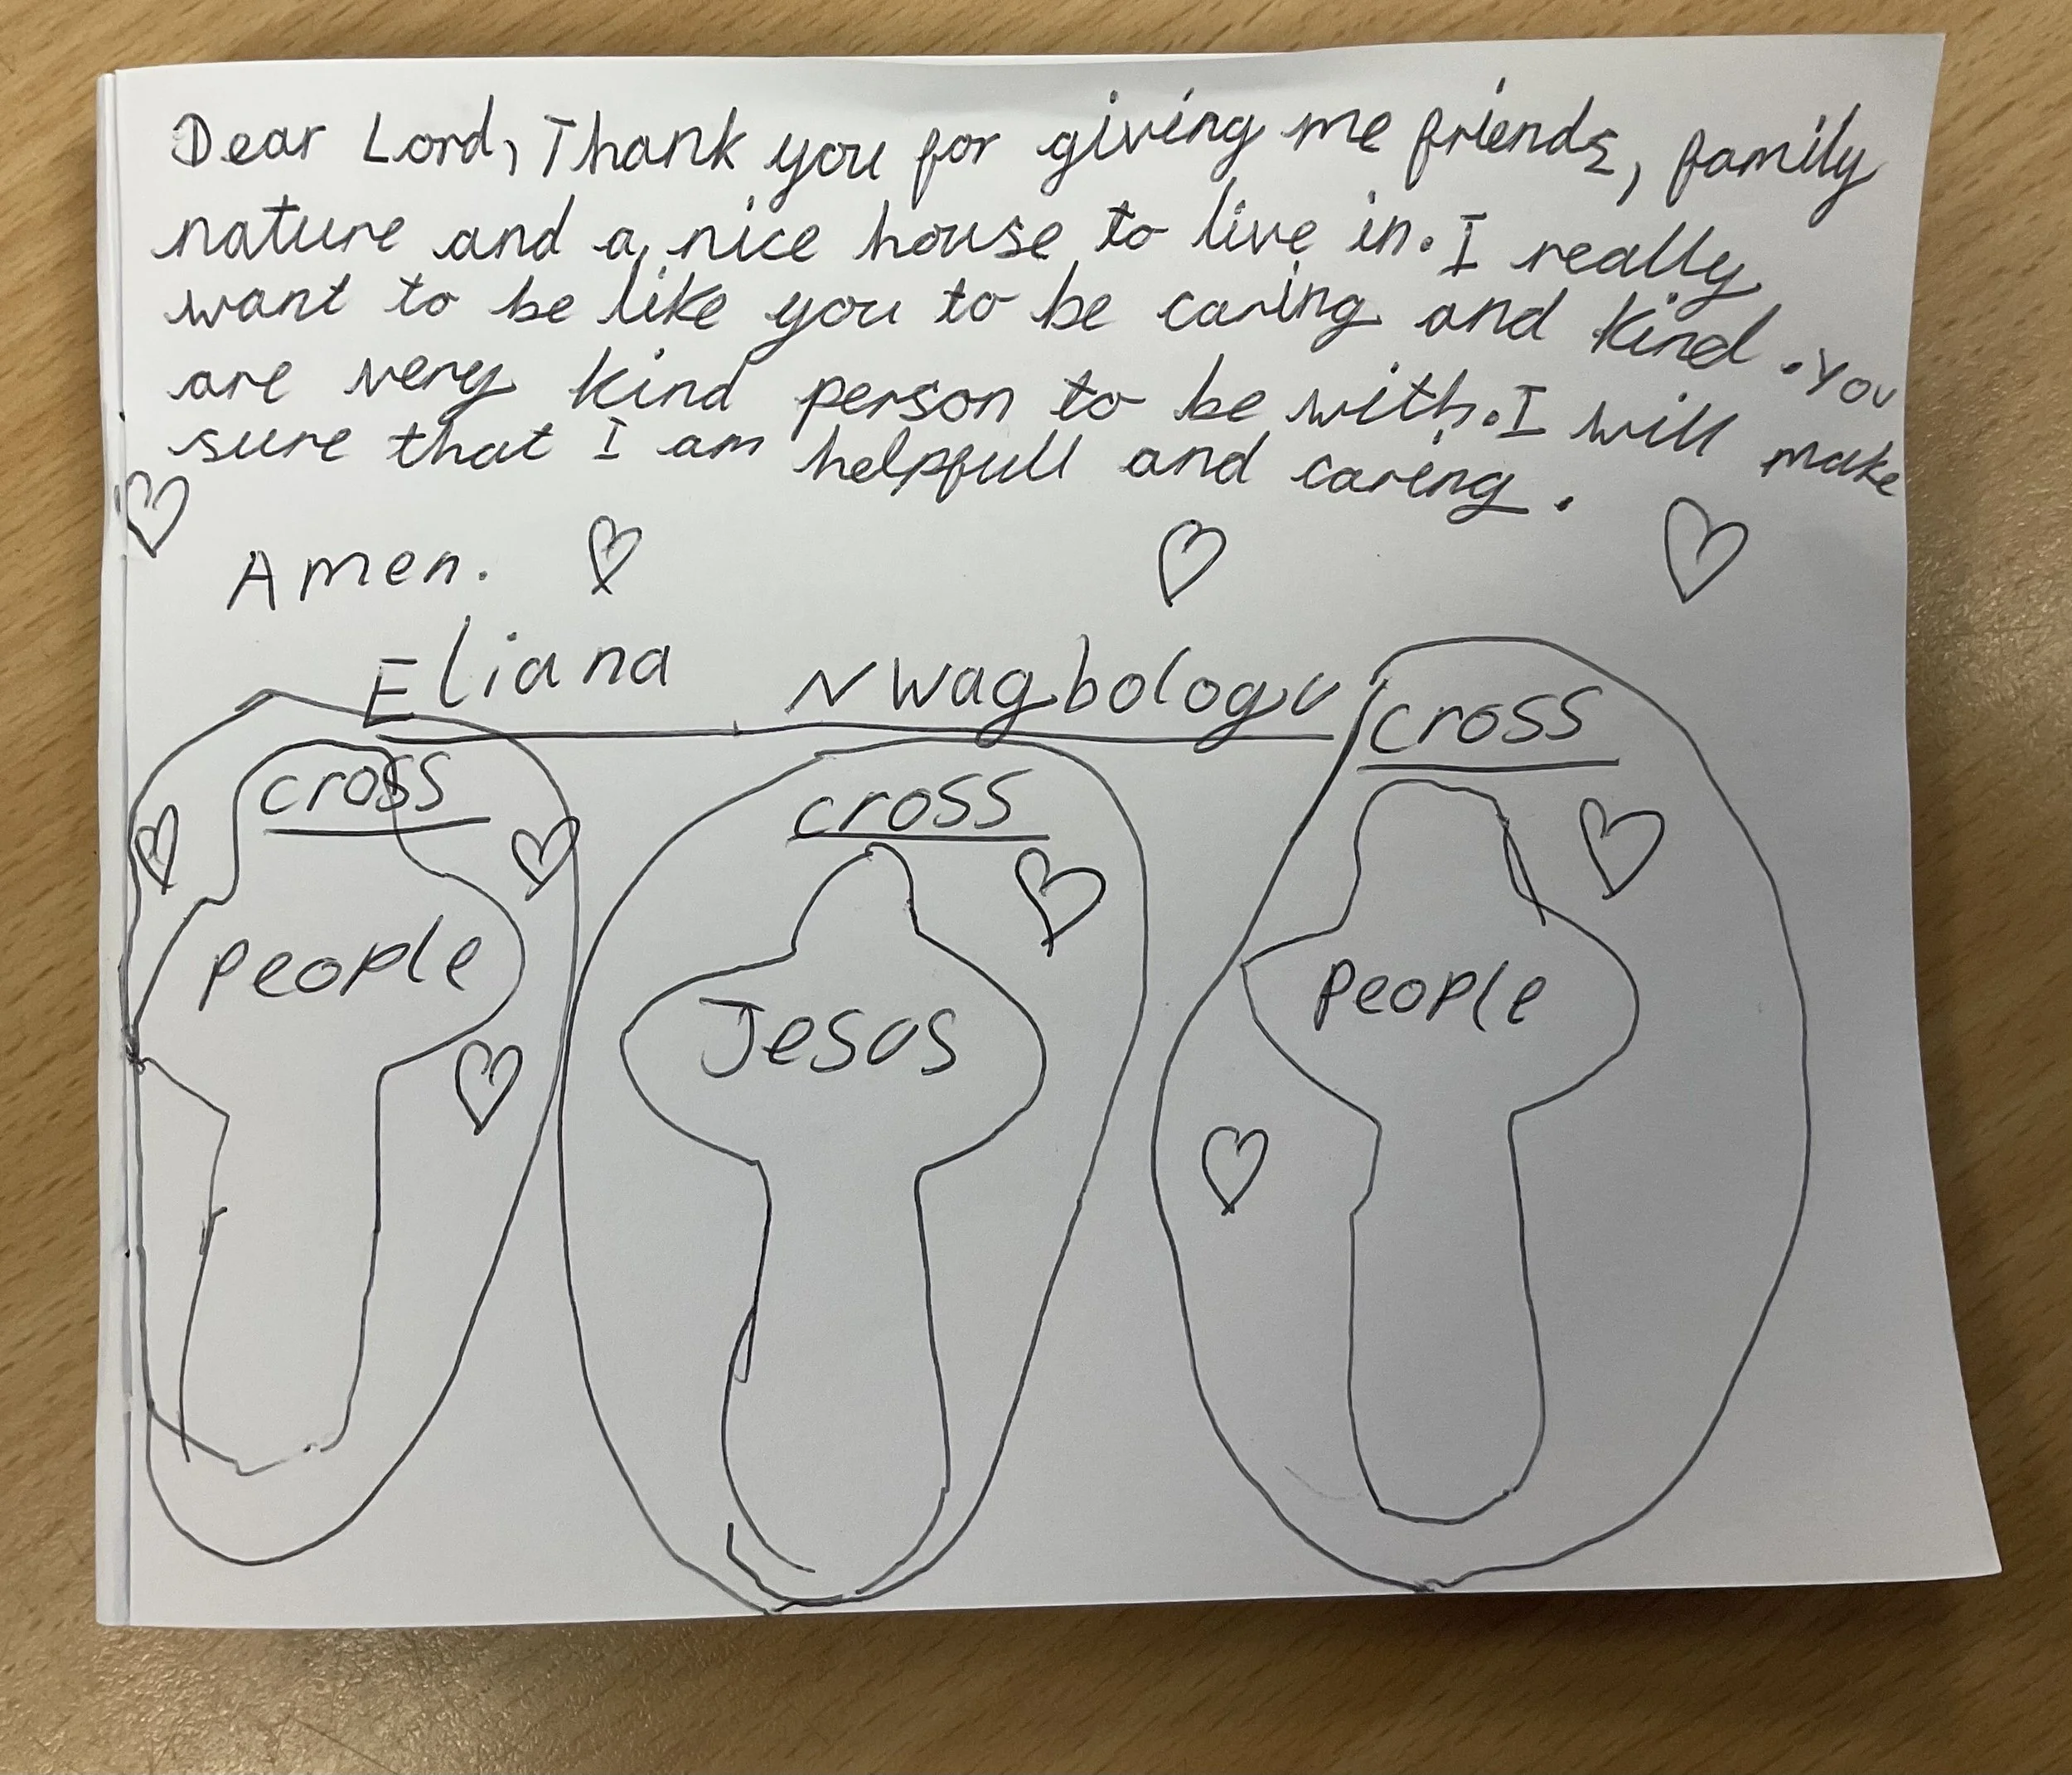 Dear Lord, Thank you for giving me friends, family
nature and a nice house to live in. I really
want to be like you to be caring and kind. You
are very kind person to be with. I will make
sure that I am helpfull and caring.
Amen.
Eliana Nwagbologu
cross
cross
cross
people
Jesus
people